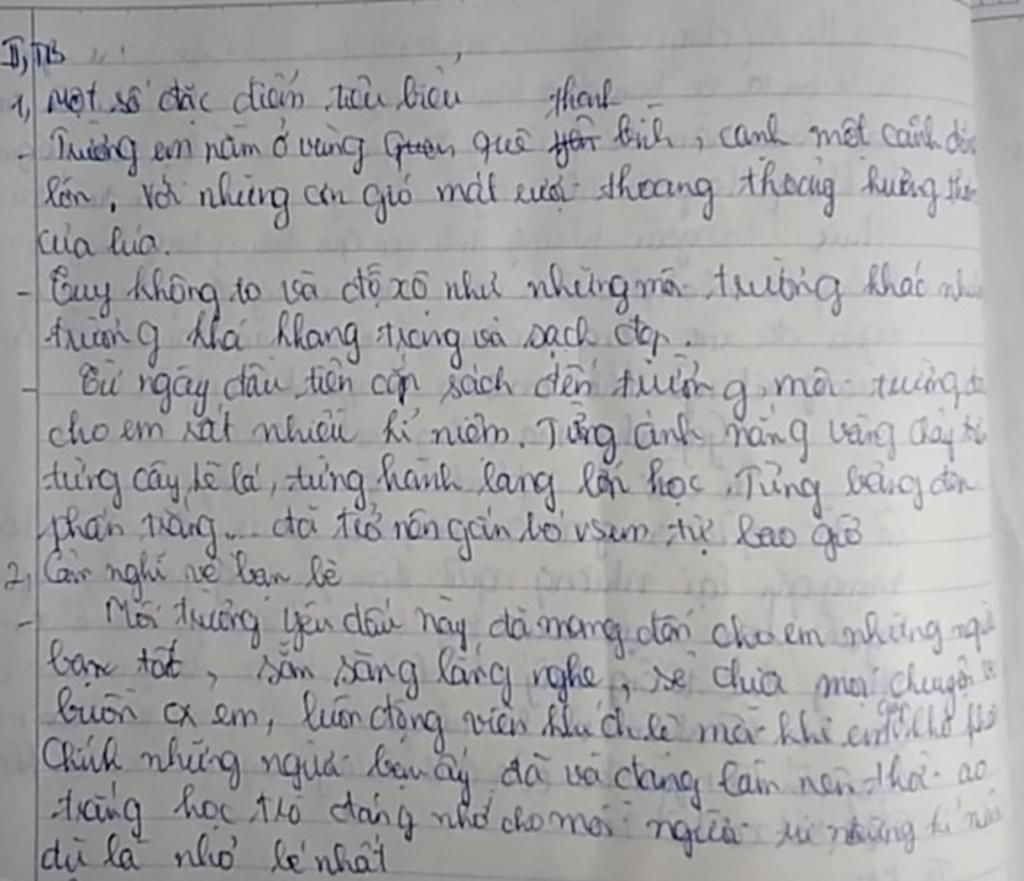 II, TB
1, Một số đặc điểm tiêu biểu
- Trường em nằm ở vùng quê thanh bình, cạnh một cánh
lớn, với những cơn gió mát rượi thoang thoảng hương
của lúa.
- Tuy không to và đồ xộ như những mái trường khác
trường khá khang trang và sạch đẹp.
- Từ ngày đầu tiên cắp sách đến trường, mái trường
cho em rất nhiều kỉ niệm. Từng ánh nắng vàng
từng cây, kẽ lá, từng hành lang lớp học. Từng bảng đen
phấn trắng... đã trở nên gắn bó vs em tự bao giờ
2, Cảm nghĩ về bạn bè
- Mái trường yêu dấu này đã mang đến cho em những
bạn tốt, sẵn sàng lắng nghe, sẻ chia mọi chuyện
buồn của em, luôn động viên khích lệ mỗi khi em
Chính những người bạn ấy đã và đang làm nên thời áo
trắng học trò đáng nhớ cho mọi người từ những kỉ
dù là nhỏ bé nhất